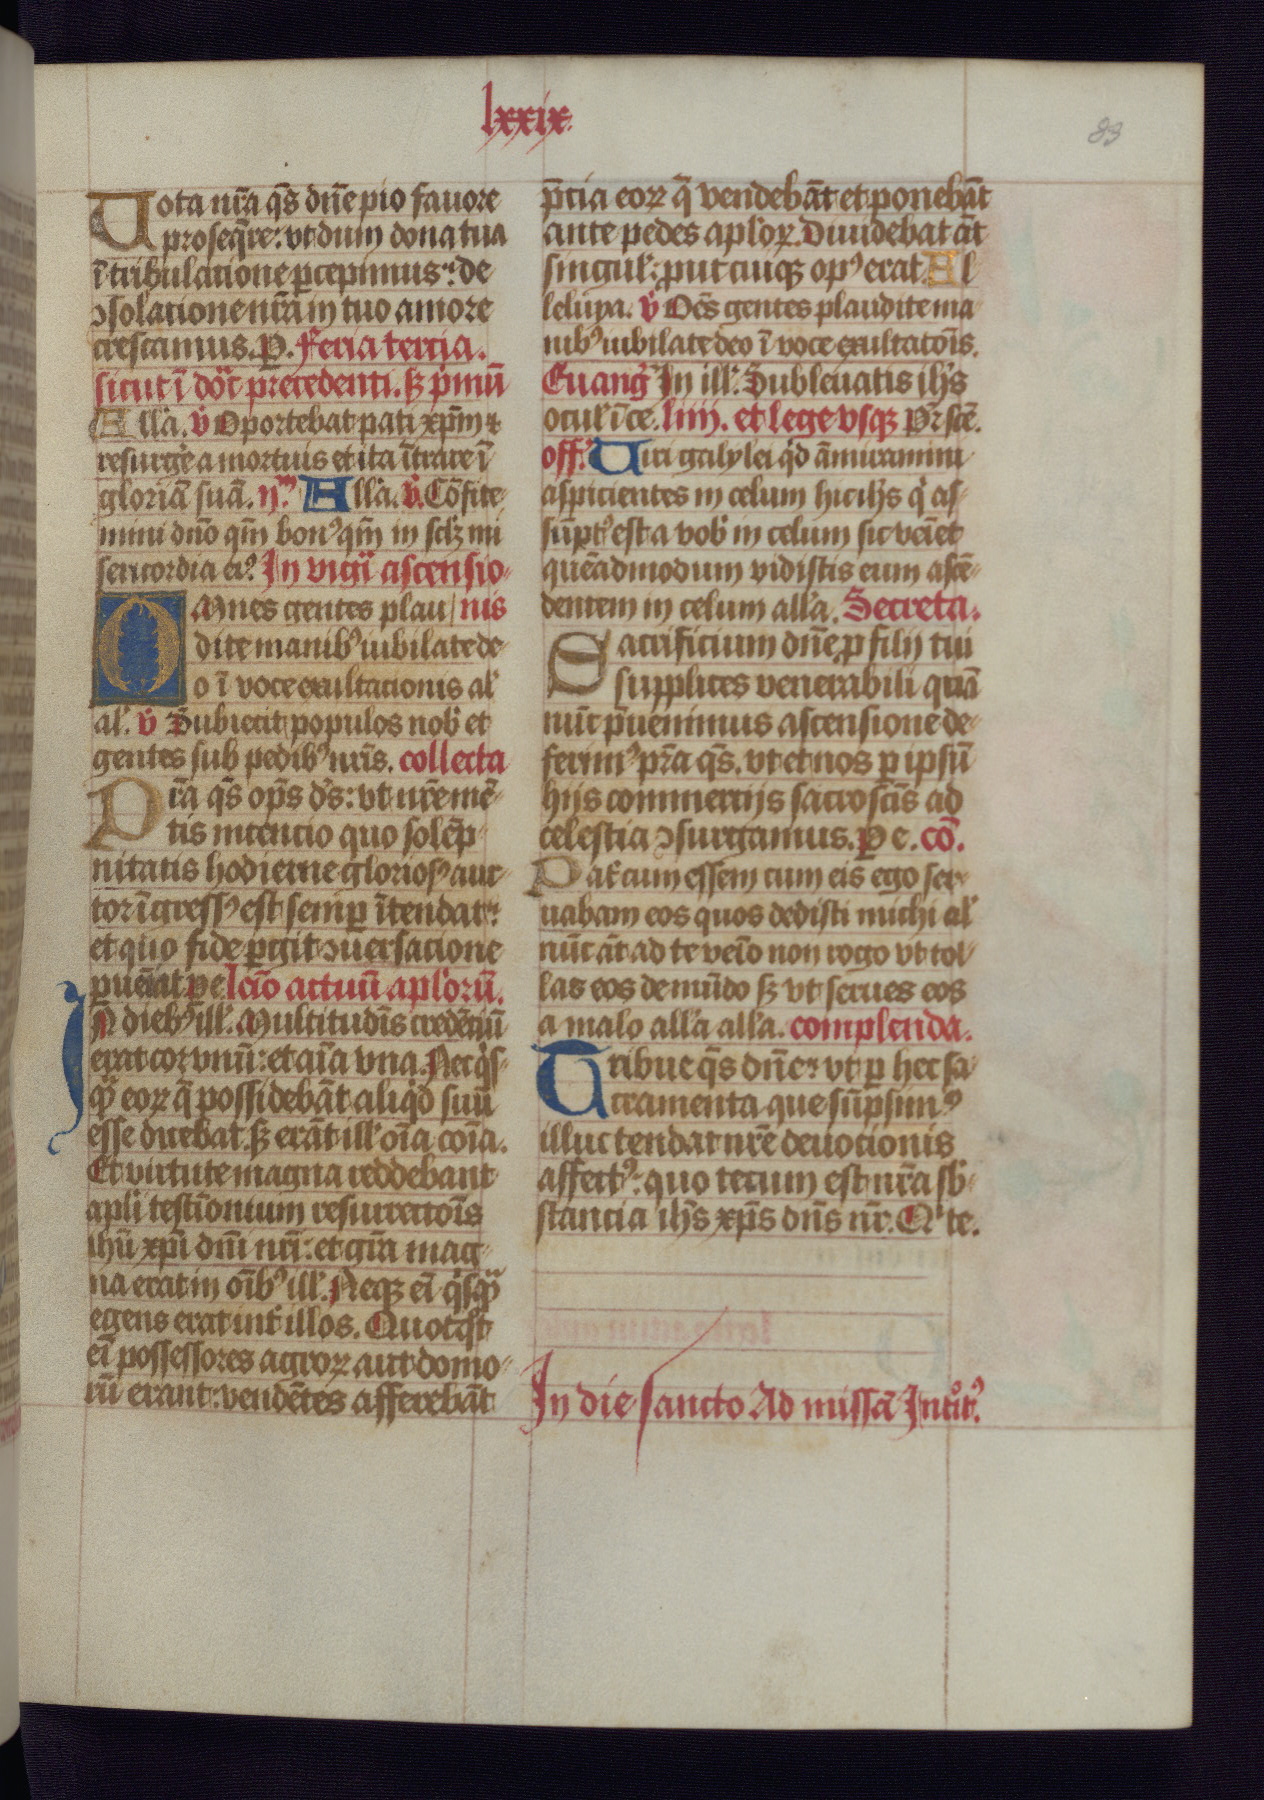 lxxix
83
Uota nr̄a q̄s dn̄e pio fauore
proseq̄re: vt dum dona tua
ī tribulatione ꝑcepimus: de
ↄsolatione nr̄a in tuo amore
crescamus. P. Feria tercia.
sicut ī doc̄ precedenti. sꝫ p̄mū
All'a. v̄ Oportebat pati xp̄m ⁊
resurge a mortuis et ita ītrare ī
gloriā suā. ij.ᵐ All'a. v̄. Cōfite
mini dn̄o qm̄ bonꝰ qm̄ in sclꝫ mi
sericordia eiꝰ In vigil' ascensio
Omnes gentes plau nis
dite manibꝰ iubilate de
o ī voce exultationis al'
al'. v̄ Subiecit populos nob' et
gentes sub pedibꝰ nr̄is. collecta
Pr̄a q̄s op̄s d's: vt nr̄e mē
tis intencio quo solēp
nitatis hodierne gloriosꝰ auc
tor īgressꝰ est semꝑ ītendat:
et quo fide ꝑgit ↄuersacione
pueniat ꝑ e lc̄io actuū apl'orū.
In diebꝰ ill'. Multitudīs credētiū
erat cor vnū: et aīa vna. Nec q̄s
qͣ eoꝝ q̄ possidebāt aliq̄d suū
esse dicebat. sꝫ erāt ill' oīa coīa.
Et virtute magna reddebant
apl'i testīonium resurrectoīs
ihū xp̄i dn̄i nr̄i: et gr̄a mag
na erat in oībꝰ ill'. Neqꝫ eī q̄sqͣ
egens erat int' illos. Quotq̄t
eī possessores agroꝝ aut domo
rū erant: vendētes afferebāt
p̄cia eoꝝ q̄ vendebāt et ponebāt
ante pedes apl'oꝝ. Diuidebat āt
singul': put cuiqꝫ opꝰ erat. Al
leluya. v̄ Oēs gentes plaudite ma
nibꝰ iubilate deo ī voce exultatoīs.
Euang' In ill'. Subleuatis ih's
ocul' ī ce. liiij. et lege vsqꝫ Pr̄ scē.
off. Uiri galylei q̄d āmiramini
aspicientes in celum hic ih's q̄ as
sūptꝰ est a vob' in celum sic veīet
quēadmodum vidistis eum ascē
dentem in celum all'a. Secreta.
Sacrificium dn̄e ꝓ filij tui
supplices venerabili quā
nūc p̄uenimus ascensione de
ferimꝰ pr̄a q̄s. vt et nos ꝑ ipsū
hijs commercijs sacroscīs ad
celestia ↄsurgamus. P e. cō.
Pat' cum essem cum eis ego ser
uabam eos quos dedisti michi al'
nūc āt ad te veīo non rogo vt tol
las eos de mūdo sꝫ vt serues eos
a malo all'a all'a. complenda.
Tribue q̄s dn̄e: vt ꝑ hec sa
cramenta que sūpsimꝰ
illuc tendat nr̄e deuotionis
affectꝰ: quo tecum est nr̄a sb'
stancia ih's xp̄s dn̄s nr̄. Qͥ te.
In die sancto Ad missā Intro͛it'.